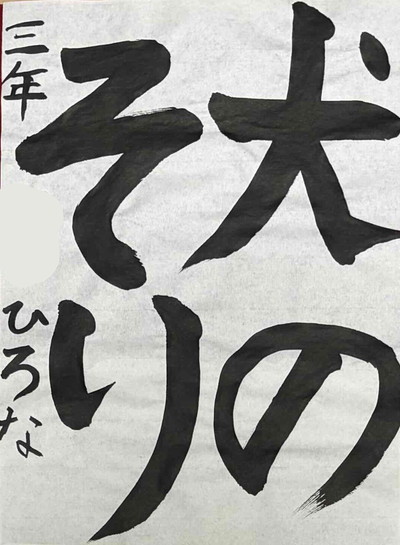 犬の
そり
三年 ひろな